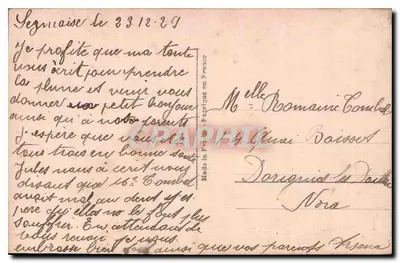 Sermaise le 23.12.29
Je profite que ma tante
vous écrit pour prendre
la plume et venir vous
donner un petit bonjour
ainsi qu'à nos parents
j'espère que vous êtes
tous trois en bonne santé
Jules nous a écrit nous
disant que M.
avait mal aux dents j'es
père qu'elles ne le font plus
souffrir. En attendant de
vous revoir je vous
embrasse bien ainsi que vos parents
Made in France - Fabriqué en France
Melle Romaine
4 Quai Boissot
Dorignies les Douai
Nord
CPARAMA